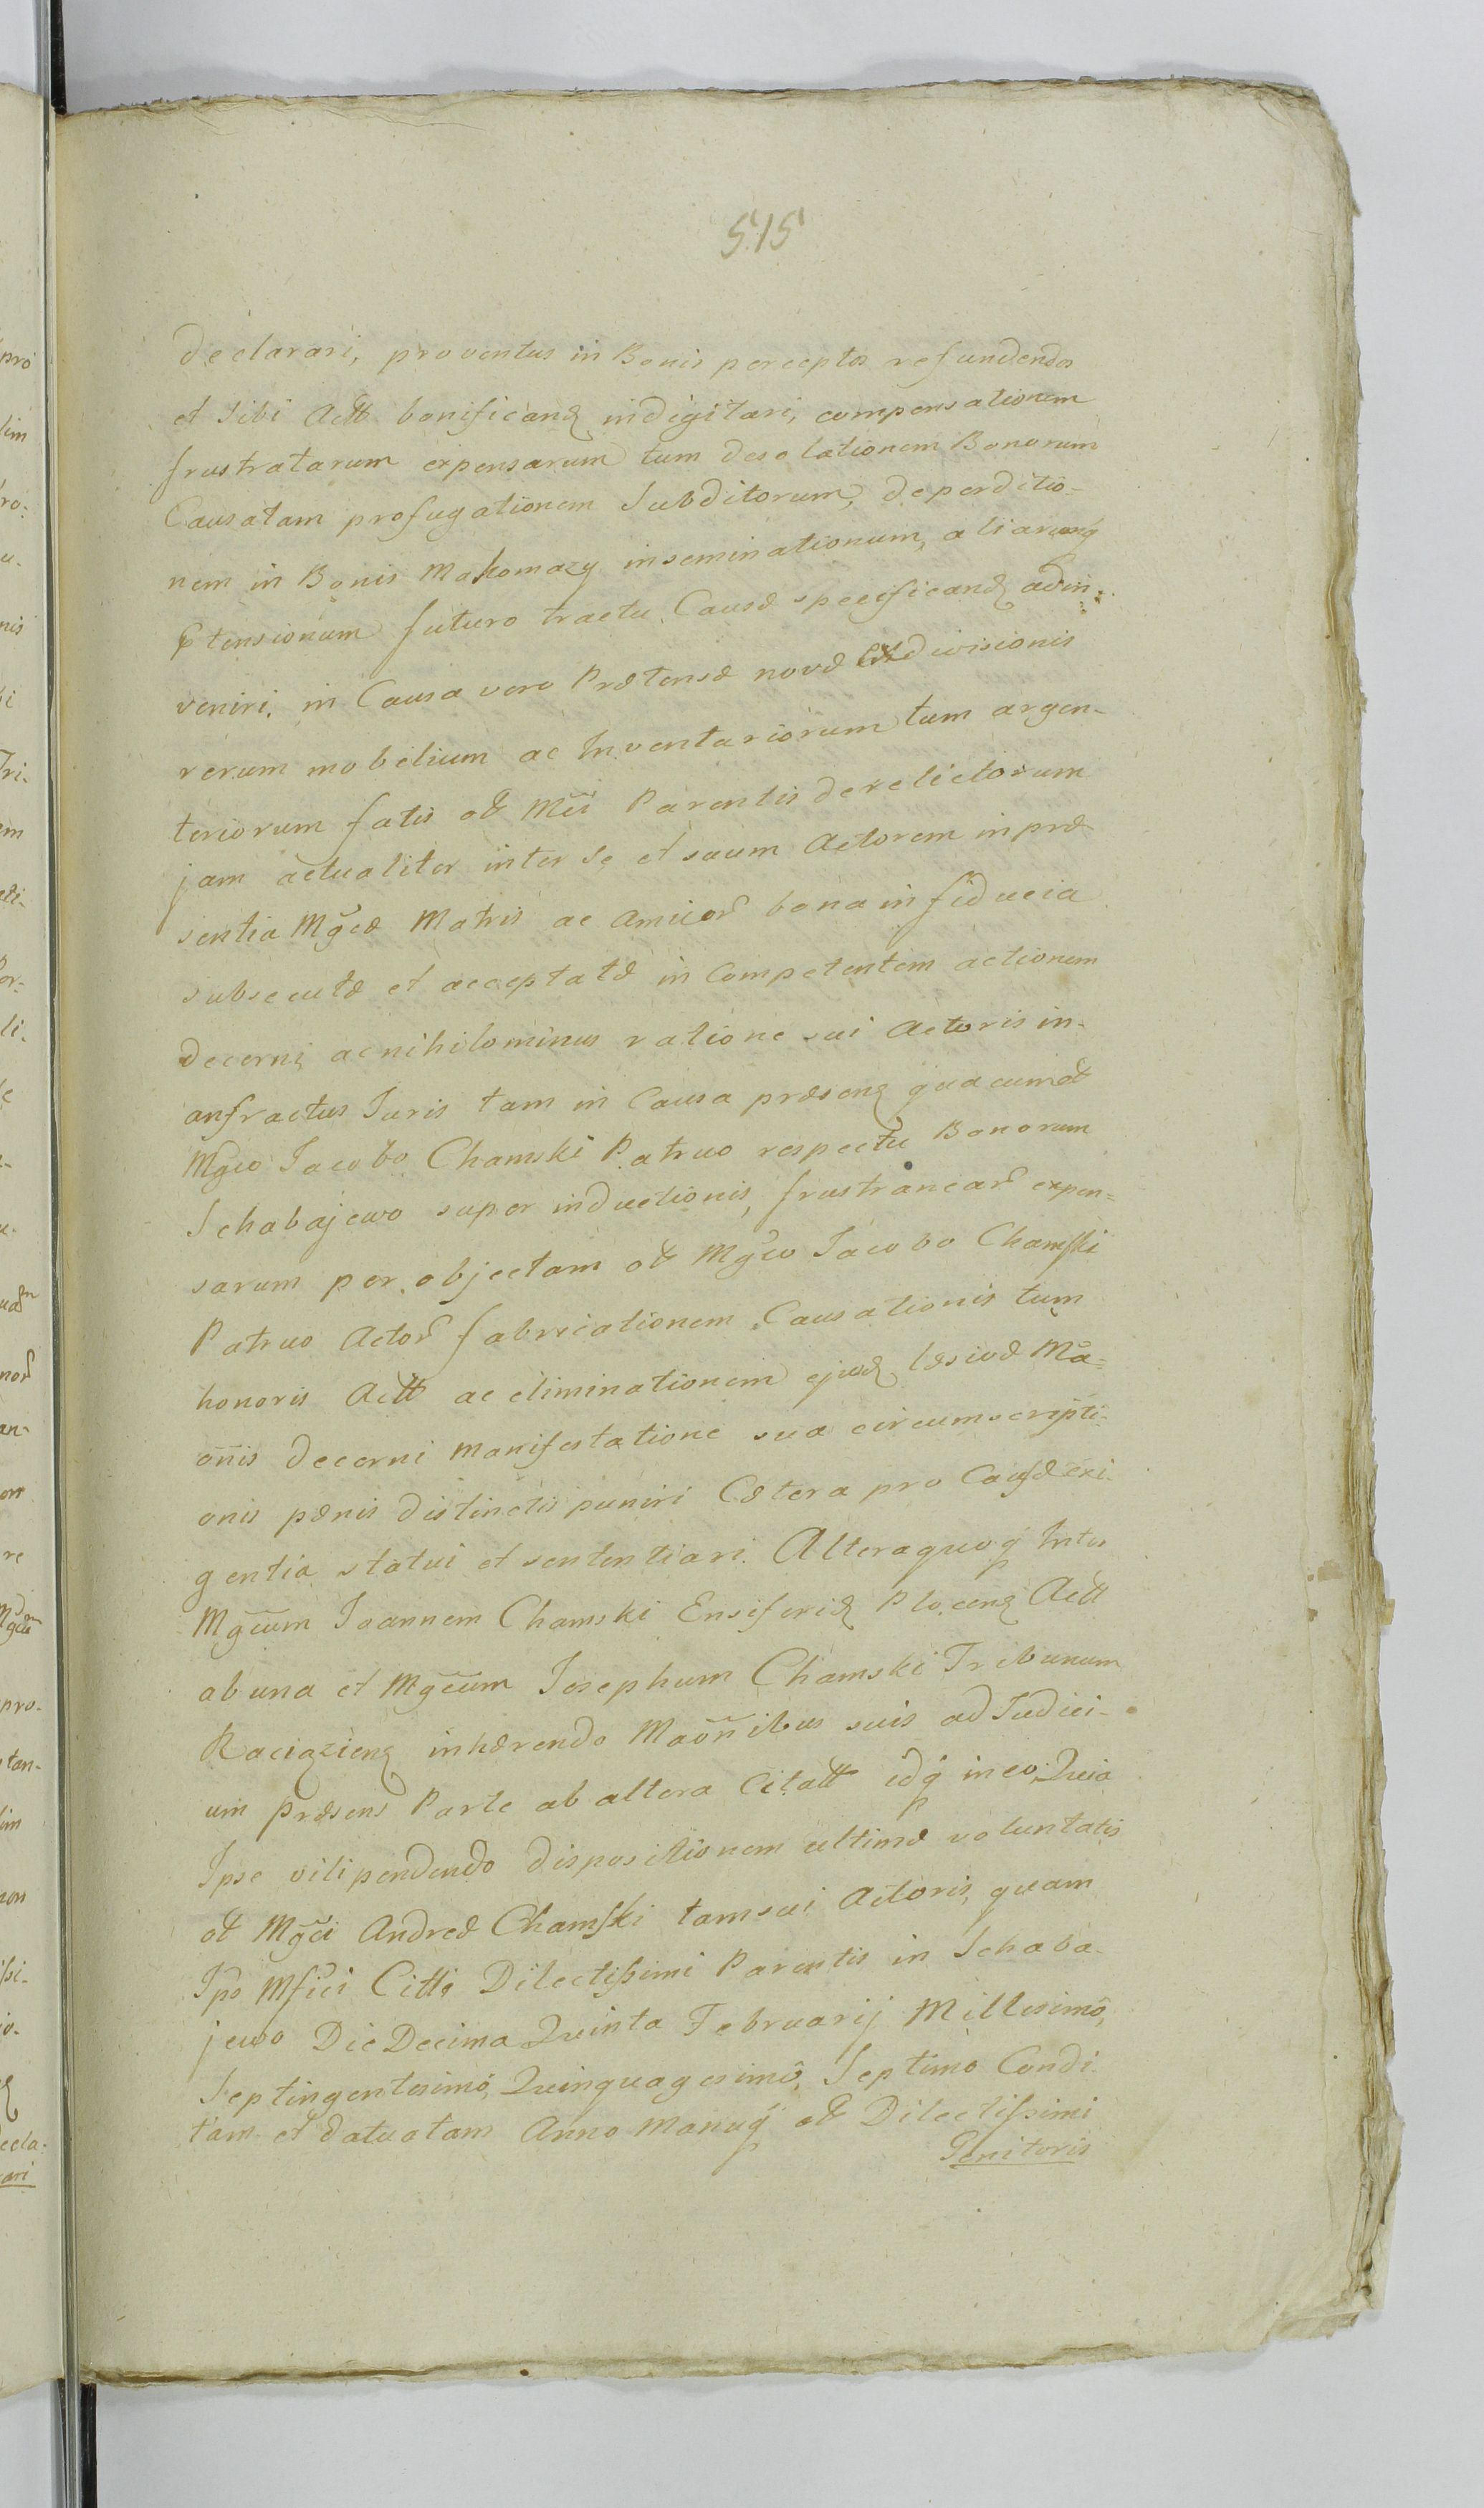 515
declarari, proventus in Bonis perceptos refundendos
et Sibi Actt bonificanď indigitari, compensationem
frustratarum expensarum tum desolationem Bonorum
Causatam profugationem Subditorum, deperditio-
nem in Bonis Makomazy inseminationum, aliarumq̃
Ptensionum futuro tractu Causæ specificanď adin-
veniri, in Causa vero Prætensæ novæ Exdivisionis
rerum mobilium ac Inventariorum tum argen-
teriorum fatis oł Mci Parentis derelictorum
jam actualiter inter se et suum Actorem in præ
sentia Mgcæ Matris ac Amicor̃ bona in fiducia
subsecutæ et acceptatæ in Competentem actionem
decerni, ac nihilominus ratione sui Actoris in-
anfractus Juris tam in Causa præsenť qua cum oł
Mgco Jacobo Chamski Patruo respectu Bonorum
Schabajewo super inductionis, frustranear̃ expen=
sarum per objectam oł Mgco Jacobo Chamski
Patruo Actor̃ fabricationem Causationis tum
honoris Actt ac eliminationem ejusď læsivæ Ma=
onnis decerni manifestatione sua circumscripti-
onis pænis distinctis puniri Cætera pro Causæ exi-
gentia statui et sententiari. Alteraquoq̃ Inter
Mgcum Joannem Chamski Ensiferiď Plocenď Actt
ab una et Mgcum Josephum Chamski Tribunum
Raciązienď inhærendo Maonnibus suis ad Judici-
um præsens Parte ab altera Citatt idq̃ in eo, Quia
Ipse vilipendendo dispositionem ultimæ voluntatis
oł Mgci Andreæ Chamski tam sui Actoris, quam
Ips Mfici Citti Dilectissimi Parentis in Schaba-
jewo Die Decima Quinta Februarij Millesimo,
Septingentesimo, Quinquagesimo, Septimo Condi-
tam et datuatam Anno Manuq̃ oł Dilectissimi
Genitoris